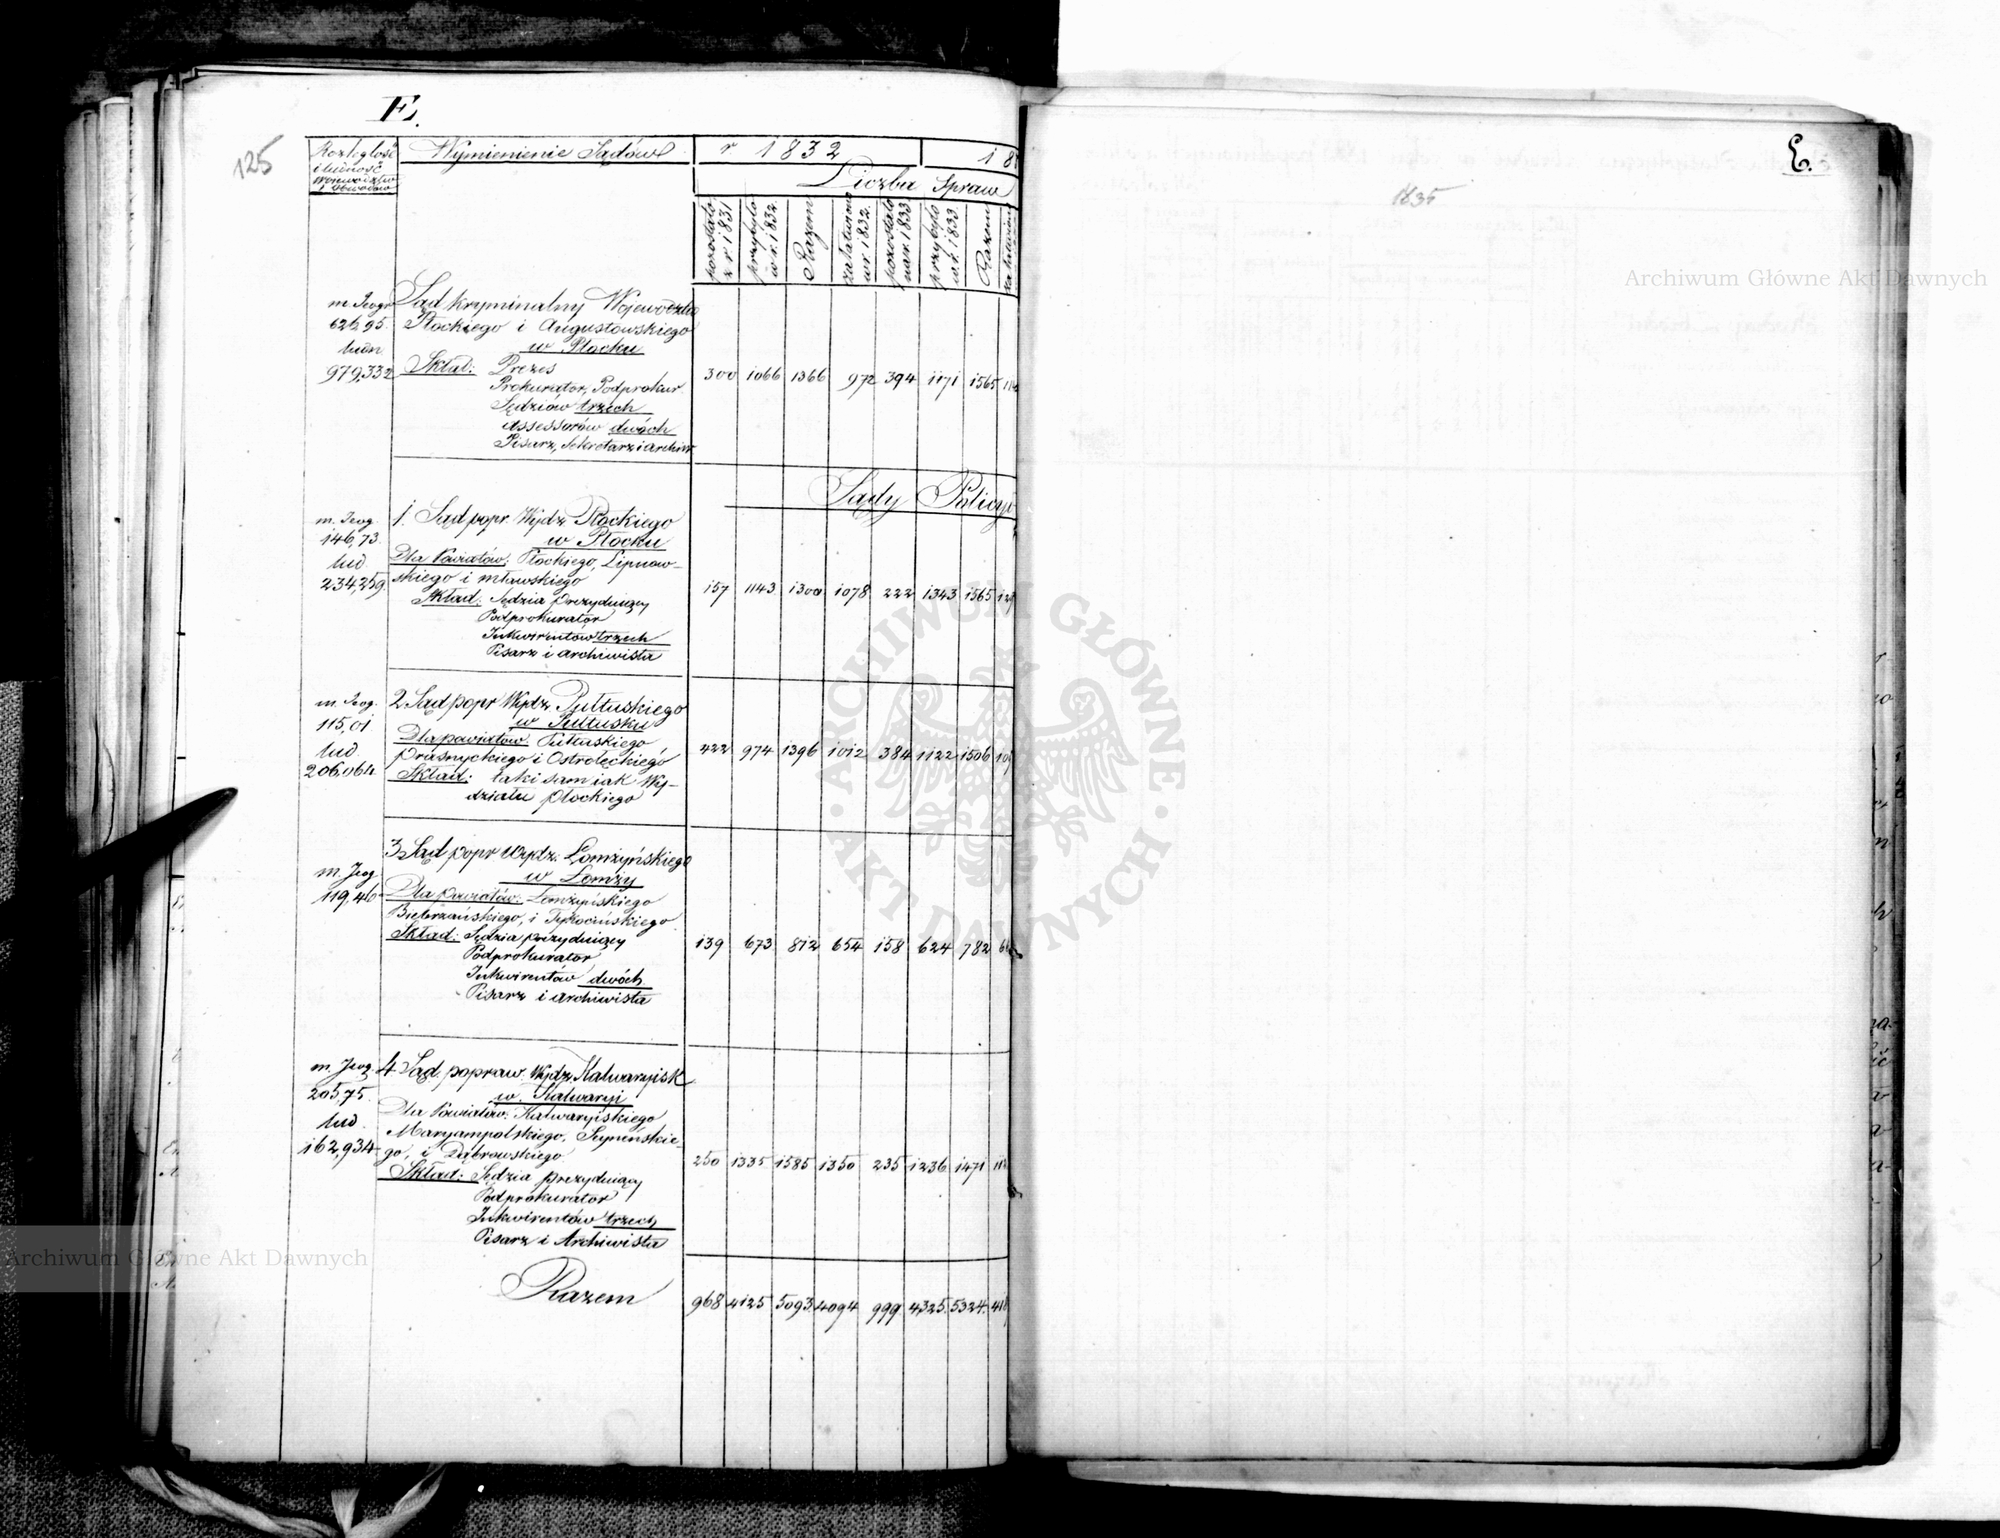 E.
125
Rozległość
i ludność
Województw
i Obwodów
Wymienienie Sądów
r. 1832
18
Liczba Spraw
pozostało
z r. 1831
przybyło
w r. 1832.
Razem
załatwiono
w r. 1832.
pozostało
na r. 1833
przybyło
w r. 1833.
Razem
m. Jeogr
626,95.
ludn
979,332
Sąd Kryminalny Wojewódz
Płockiego i Augustowskiego
w Płocku
Skład: Prezes
Prokurator, Podprokur.
Sędziów trzech
Assessorów dwóch
Pisarz, Sekretarz i Archiw.
300 1066 1366 972 394 1171 1565
Sądy Policyi
m. Jeog.
146,73.
lud.
234,259.
1. Sąd popr. Wydz. Płockiego
w Płocku
Dla Powiatów: Płockiego, Lipnow-
skiego i Mławskiego
Skład: Sędzia prezydujący
Podprokurator
Inkwirentów trzech
Pisarz i archiwista
157 1143 1300 1078 222 1343 1565
m. Jeog.
115,01.
lud
206,064.
2 Sąd popr Wydz. Pułtuskiego
w Pułtusku
Dla powiatów: Pułtuskiego
Prasnyckiego i Ostrołęckiego
Skład: taki sam iak Wy-
działu Płockiego
422 974 1396 1012 384 1122 1506
m. Jeog
119,46
3 Sąd popr Wydz. Łomżyńskiego
w Łomży
Dla powiatów: Łomżyńskiego
Biebrzańskiego, i Tykocińskiego
Skład: Sędzia prezydujący
Podprokurator
Inkwirentów dwóch
Pisarz i archiwista
139 673 812 654 158 624 782
m. Jeog.
205,75.
lud.
162,934
4 Sąd popraw. Wydz. Kalwaryisk
w. Kalwaryi
Dla Powiatów: Kalwaryiskiego
Maryampolskiego, Seyneńskie-
go, i Dąbrowskiego
Skład: Sędzia prezydujący
Podprokurator
Inkwirentów trzech
Pisarz i Archiwista
250 1335 1585 1350 235 1236 1471
Razem
968 4125 5093 4094 999 4325. 5324.
E.
1835
Archiwum Główne Akt Dawnych
ARCHIWUM GŁÓWNE
AKT DAWNYCH
Archiwum Główne Akt Dawnych